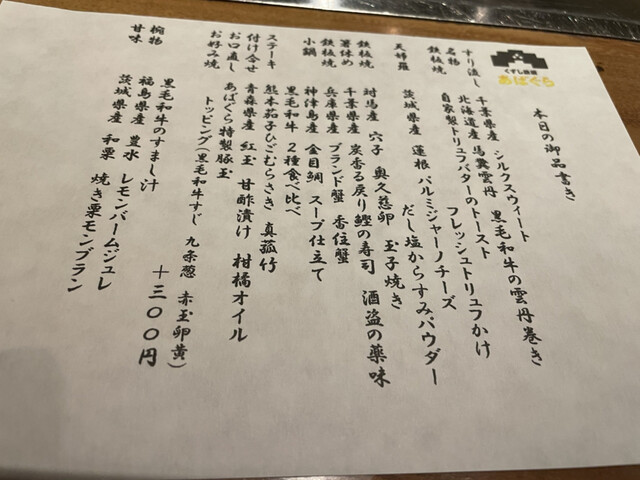 本日の御品書き
くずし鉄板
あばぐら
すり流し 千葉県産 シルクスウィート
名物 北海道産 馬糞雲丹 黒毛和牛の雲丹巻き
鉄板焼 自家製トリュフバターのトースト フレッシュトリュフかけ
天婦羅 茨城県産 蓮根 パルミジャーノチーズ
だし塩からすみパウダー
鉄板焼 対馬産 穴子 奥久慈卵 玉子焼き
箸休め 千葉県産 炭香る戻り鰹の寿司 酒盗の薬味
鉄板焼 兵庫県産 ブランド蟹 香住蟹
小鍋 神津島産 金目鯛 スープ仕立て
ステーキ 黒毛和牛 2種食べ比べ
付け合せ 熊本茄子ひごむらさき 真菰竹
お口直し 青森県産 紅玉 甘酢漬け 柑橘オイル
お好み焼 あばぐら特製豚玉
トッピング(黒毛和牛すじ 九条葱 赤玉卵黄)
+三〇〇円
椀物 黒毛和牛のすまし汁
甘味 福島県産 豊水 レモンバームジュレ
茨城県産 和栗 焼き栗モンブラン